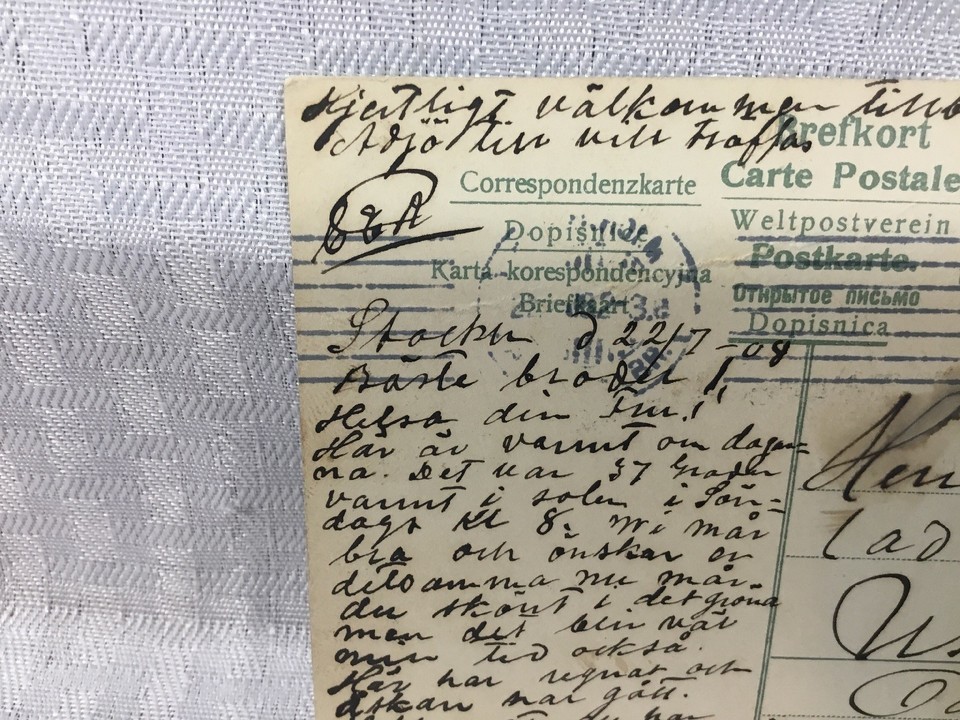 Hjertligt välkommen
Adjö till vell träffas
Brefkort
Correspondenzkarte
Carte Postale
Weltpostverein
Dopisnice
Postkarte.
Karta korespondencyjna
Открытое письмо
Briefkaart
Dopisnica
Stockh d 22/7 -08
Bäste broder!
Helsa din Fru!
Här är varmt om dagar=
na. Det var 37 Grader
varmt i solen i Sön=
dags kl 8. Wi mår
bra och önskar er
detsamma nu mår
du skönt i det gröna
men det blir väl
min tid också.
Här har regnat och
åskan har gått.
har